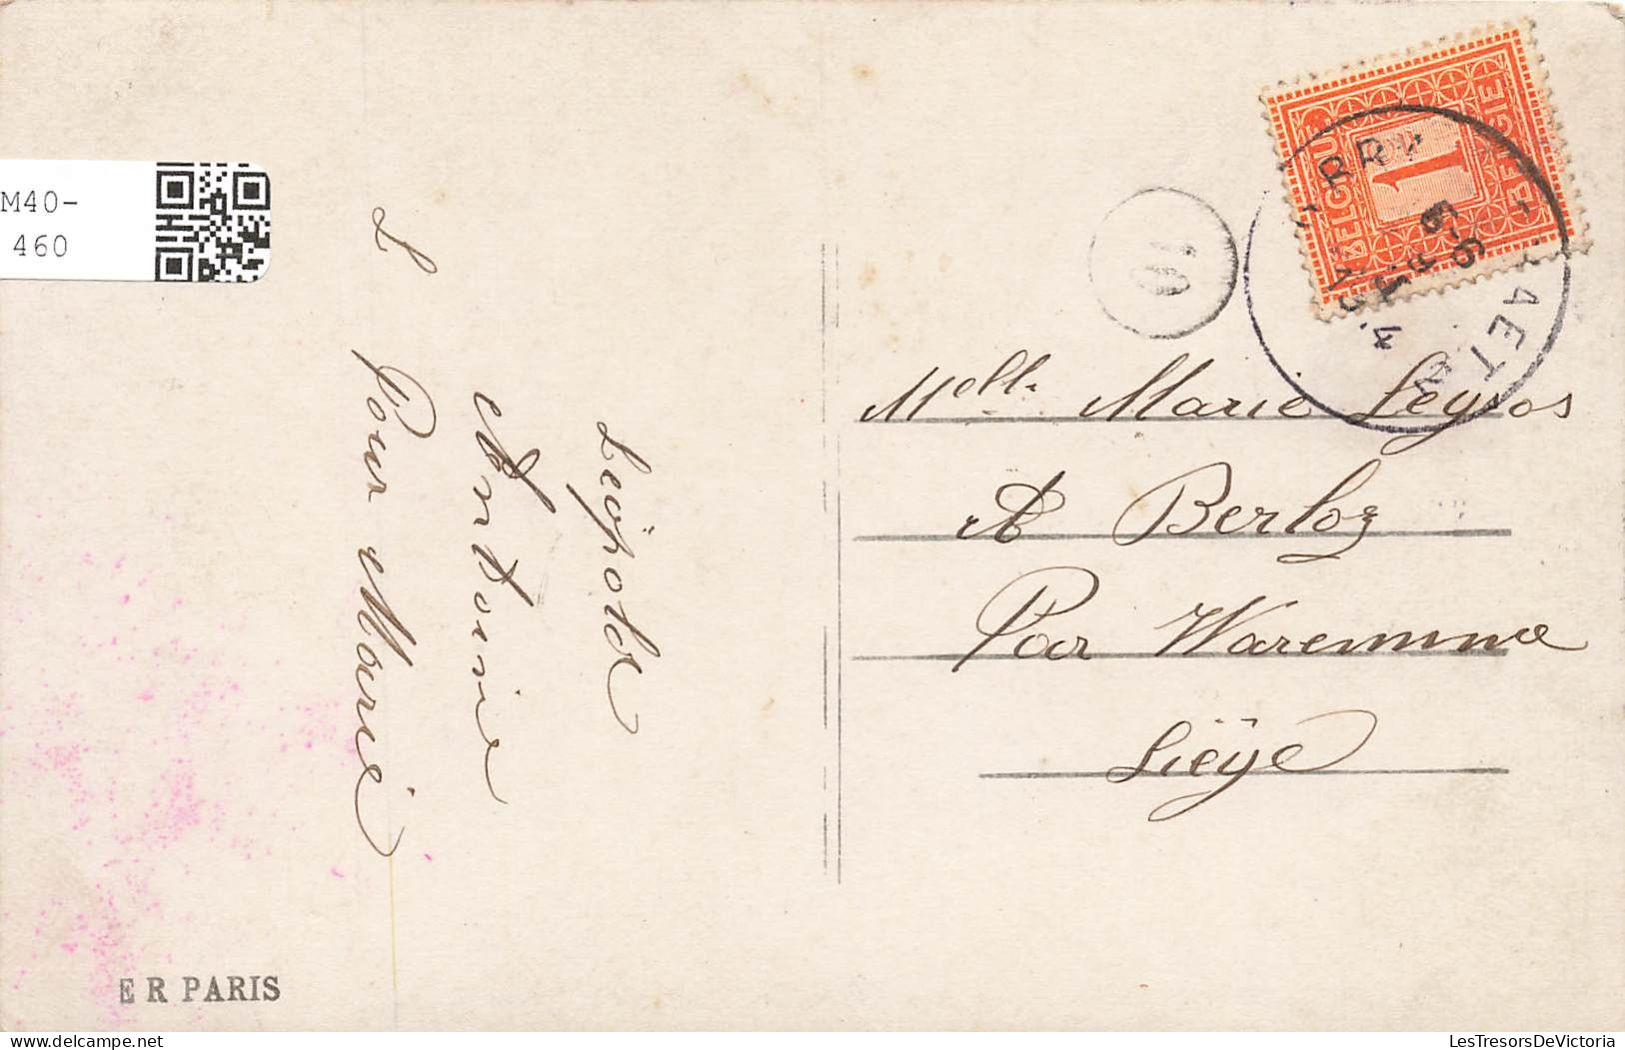 M40-
460
BELGIQUE
1
BELGIË
10
Melle Marie Leyros
A Berloz
Par Waremme
Liège
Pour Marie
Antoinie
Léopold
E R PARIS
LesTresorsDeVictoria